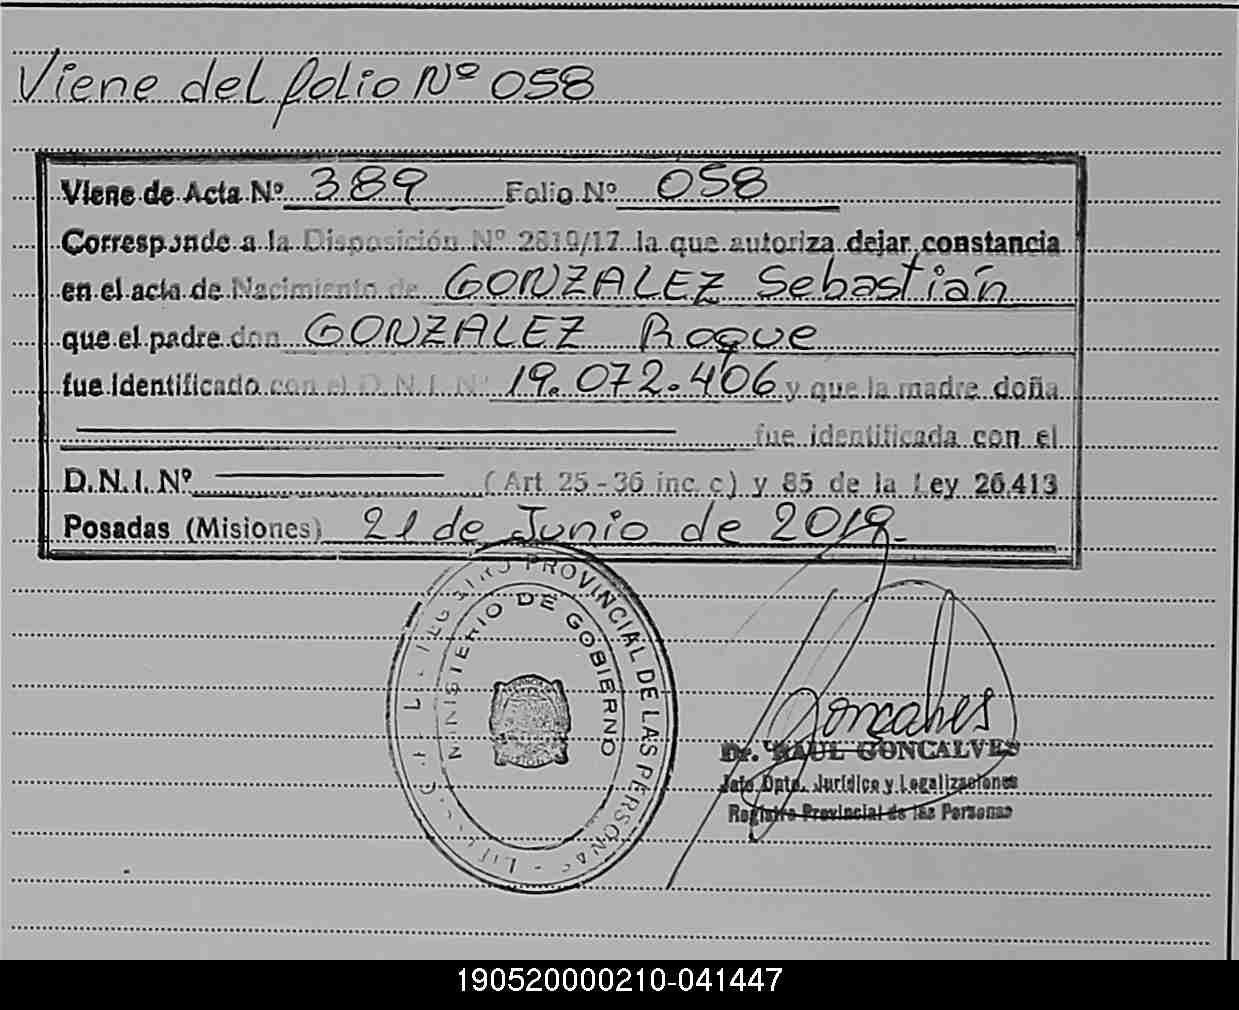 Viene del folio Nº 058
Viene de Acta Nº 389 Folio Nº 058
Corresponde a la Disposición Nº 2819/17 la que autoriza dejar constancia
en el acta de Nacimiento de GONZALEZ Sebastián
que el padre don GONZALEZ Roque
fue identificado con el D.N.I. Nº 19.072.406 y que la madre doña
fue identificada con el
D.N.I. Nº (Art 25-36 inc. c) y 85 de la Ley 26.413
Posadas (Misiones) 21 de Junio de 2019.
PROVINCIAL DE LAS PERSONAS
MINISTERIO DE GOBIERNO
Goncalves
Dr. RAUL GONCALVES
Jefe Dpto. Jurídico y Legalizaciones
Registro Provincial de las Personas
190520000210-041447